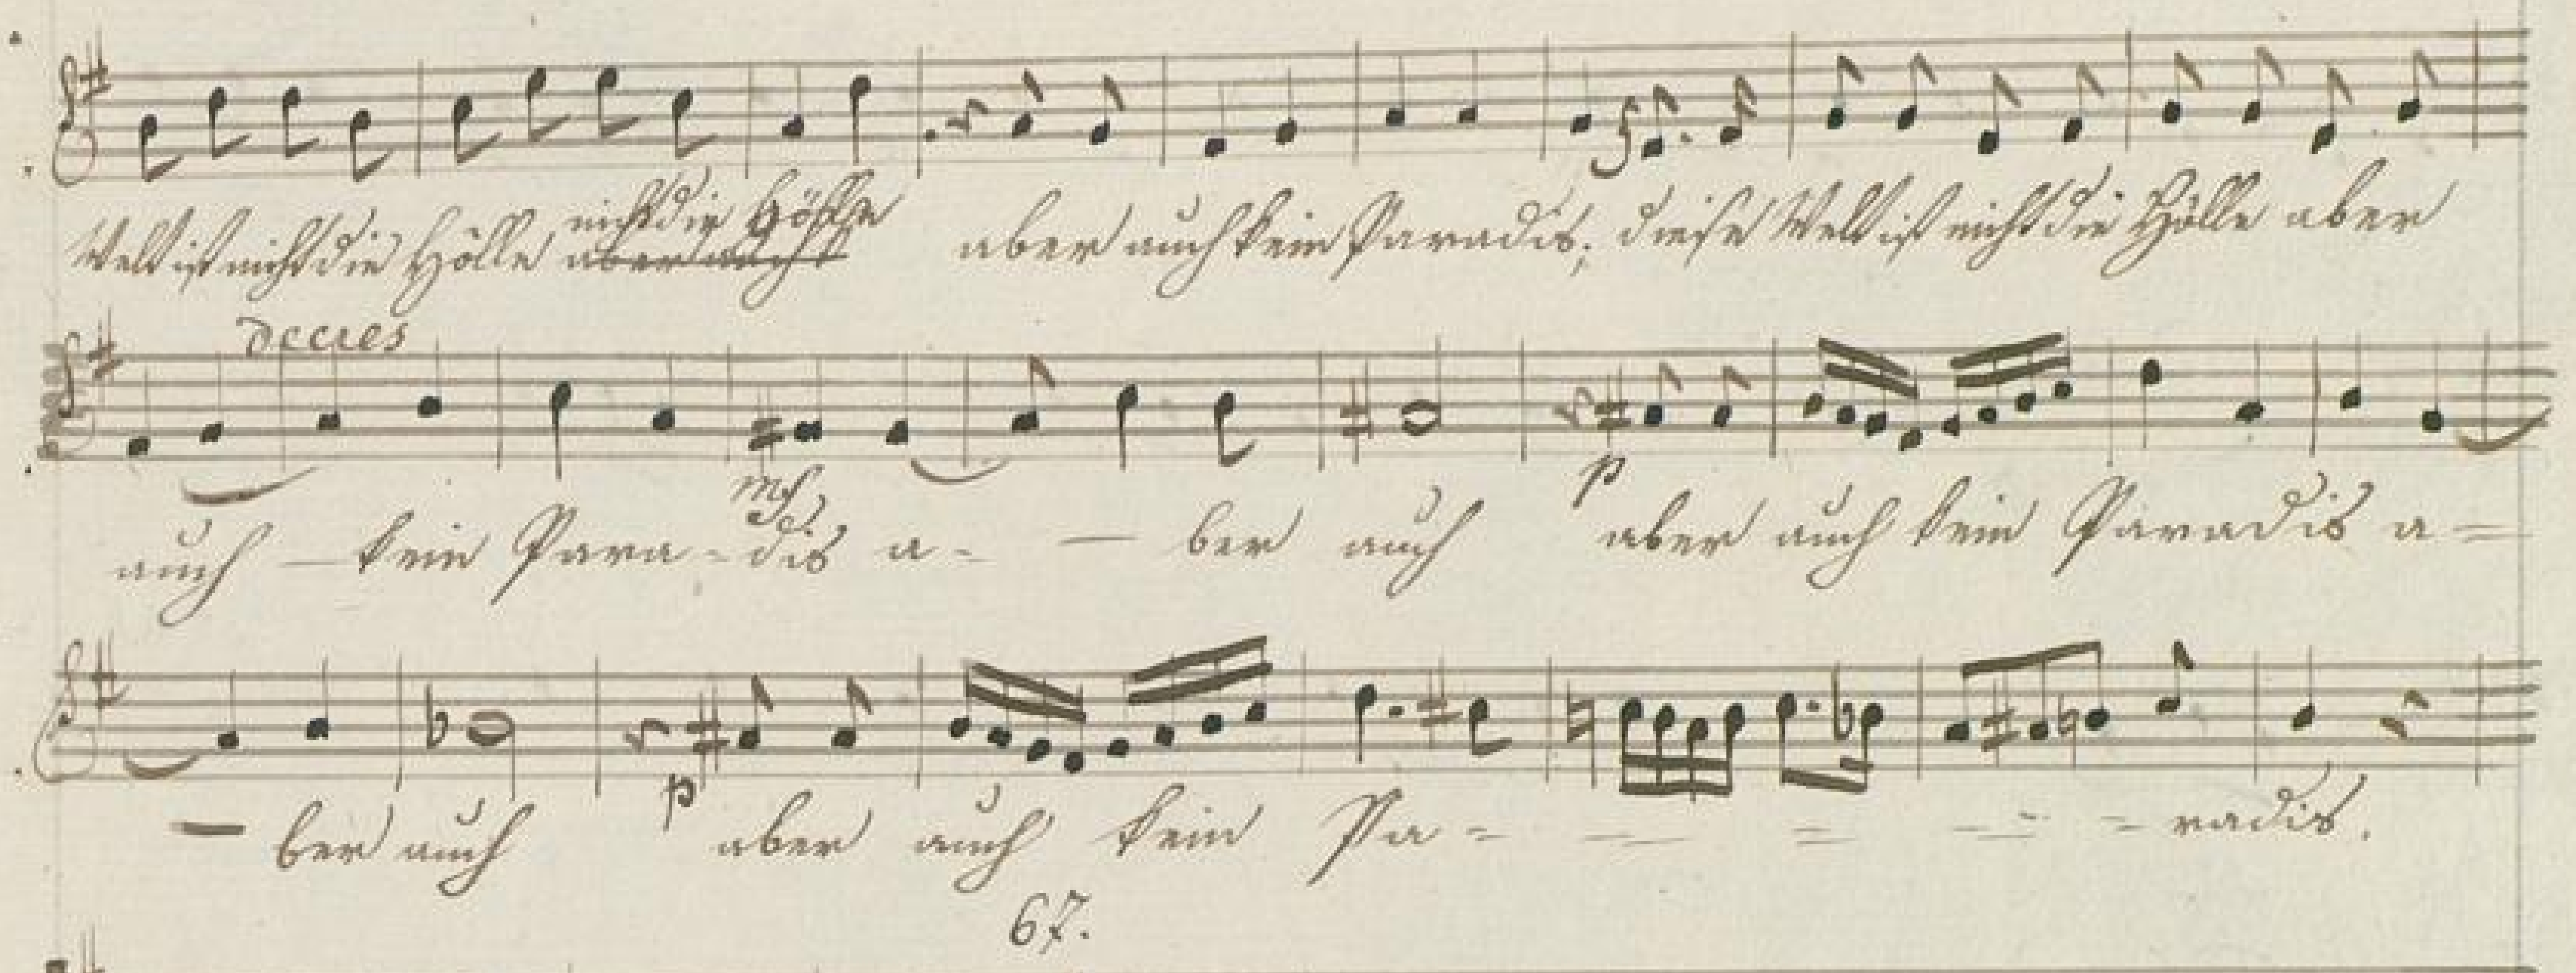 nicht die Hölle
Welt ist nicht die Hölle aber auch aber auch kein Paradis; diese Welt ist nicht die Hölle aber
decres
mf p
auch - kein Para - dis a - - ber auch aber auch kein Paradis a =
p
- ber auch aber auch kein Pa - - - - - radis.
67.